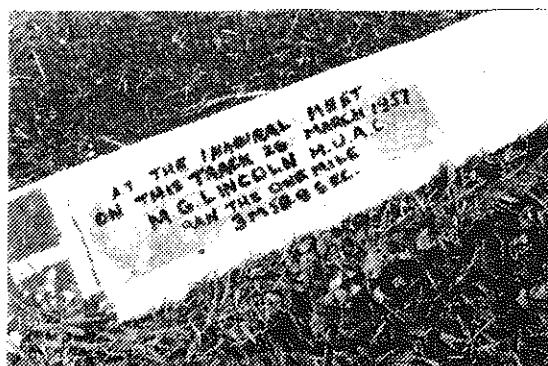 AT THE INAUGRAL MEET
ON THIS TRACK 26 MARCH 1957
M.G. LINCOLN M.U.A.C
RAN THE ONE MILE
3M 58.9 SEC.